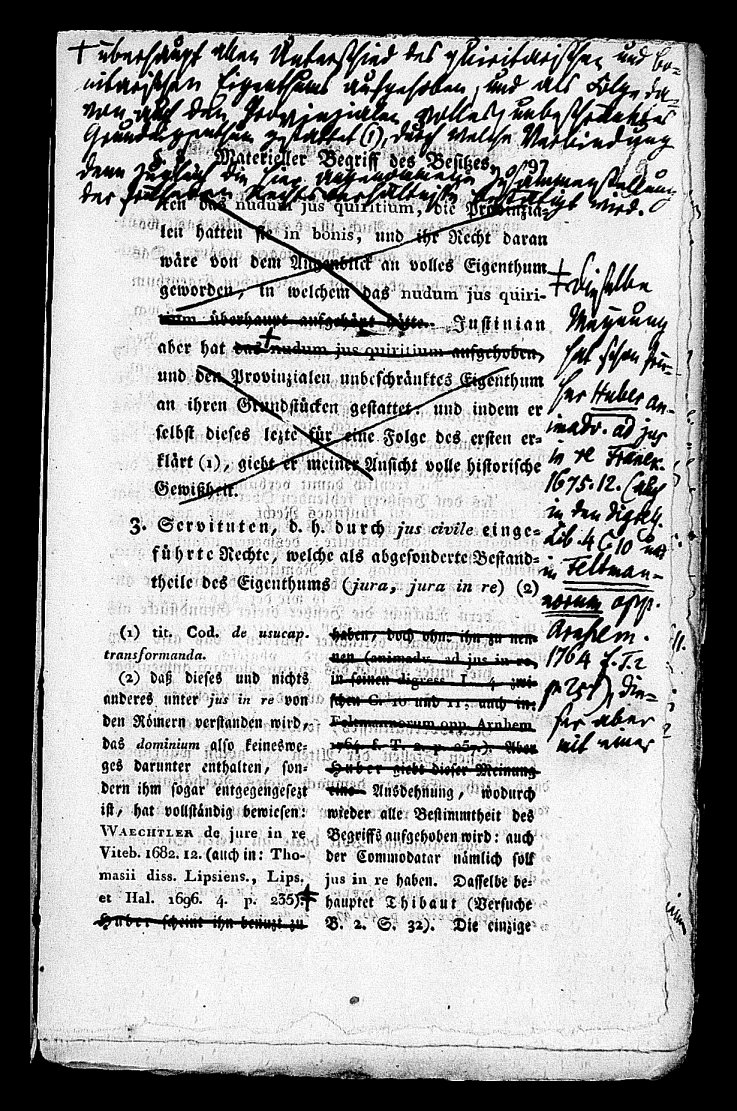 + überhaupt allen Unterschied des quiritarischen und bo-
nitarischen Eigenthums aufgehoben, und als Folge da-
von auch den Provinzialen volles, unbeschränktes
Grundeigenthum gestattet (1), durch welche Verbindung
denn zugleich die hier angenommene Zusammenstellung
der früheren Rechtsverhältnisse bestätigt wird.
Materieller Begriff des Besitzes. 97
ken das nudum jus quiritium, die Provinzia-
len hatten sie in bonis, und ihr Recht daran
wäre von dem Augenblick an volles Eigenthum
geworden, in welchem das nudum jus quiri-
tium überhaupt aufgehört hätte. Justinian
aber hat das nudum jus quiritium aufgehoben,
und den Provinzialen unbeschränktes Eigenthum
an ihren Grundstücken gestattet: und indem er
selbst dieses lezte für eine Folge des ersten er-
klärt (1), giebt er meiner Ansicht volle historische
Gewißheit.
3. Servituten, d. h. durch jus civile einge-
führte Rechte, welche als abgesonderte Bestand-
theile des Eigenthums (jura, jura in re) (2)
(1) tit. Cod. de usucap.
transformanda.
(2) daß dieses und nichts
anderes unter jus in re von
den Römern verstanden wird,
das dominium also keineswe-
ges darunter enthalten, son-
dern ihm sogar entgegengesezt
ist, hat vollständig bewiesen:
WAECHTLER de jure in re
Viteb. 1682. 12. (auch in: Tho-
masii diss. Lipsiens., Lips.
et Hal. 1696. 4. p. 235). +
Huber scheint ihn benuzt zu
haben, doch ohne ihn zu nen-
nen (animadv. ad jus in re,
in seinen digress. L. 4, zwi-
schen C. 10 und 11; auch in:
Feltmannorum opp. Arnhem.
1764. f. T. 2. p. 257.); Aber
Huber giebt dieser Meinung
eine Ausdehnung, wodurch
wieder alle Bestimmtheit des
Begriffs aufgehoben wird: auch
der Commodatar nämlich soll
jus in re haben. Dasselbe be-
hauptet Thibaut (Versuche
B. 2. S. 32). Die einzige
+ dieselbe
Meynung
hat schon frü-
her Huber an-
imadv. ad jus
in re Franek.
1675. 12. (auch
in den digress.
Lib. 4 C. 10 und
in Feltman-
norum opp.
Arnhem.
1764 f. T. 2
p 257), die-
ser aber
mit einer